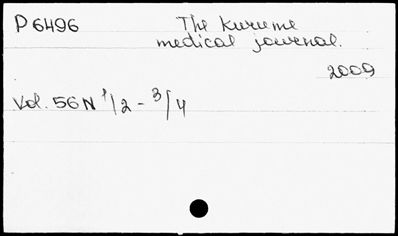 P 6496 The Kurume
medical journal.
2009
Vol. 56 N 1/2 - 3/4